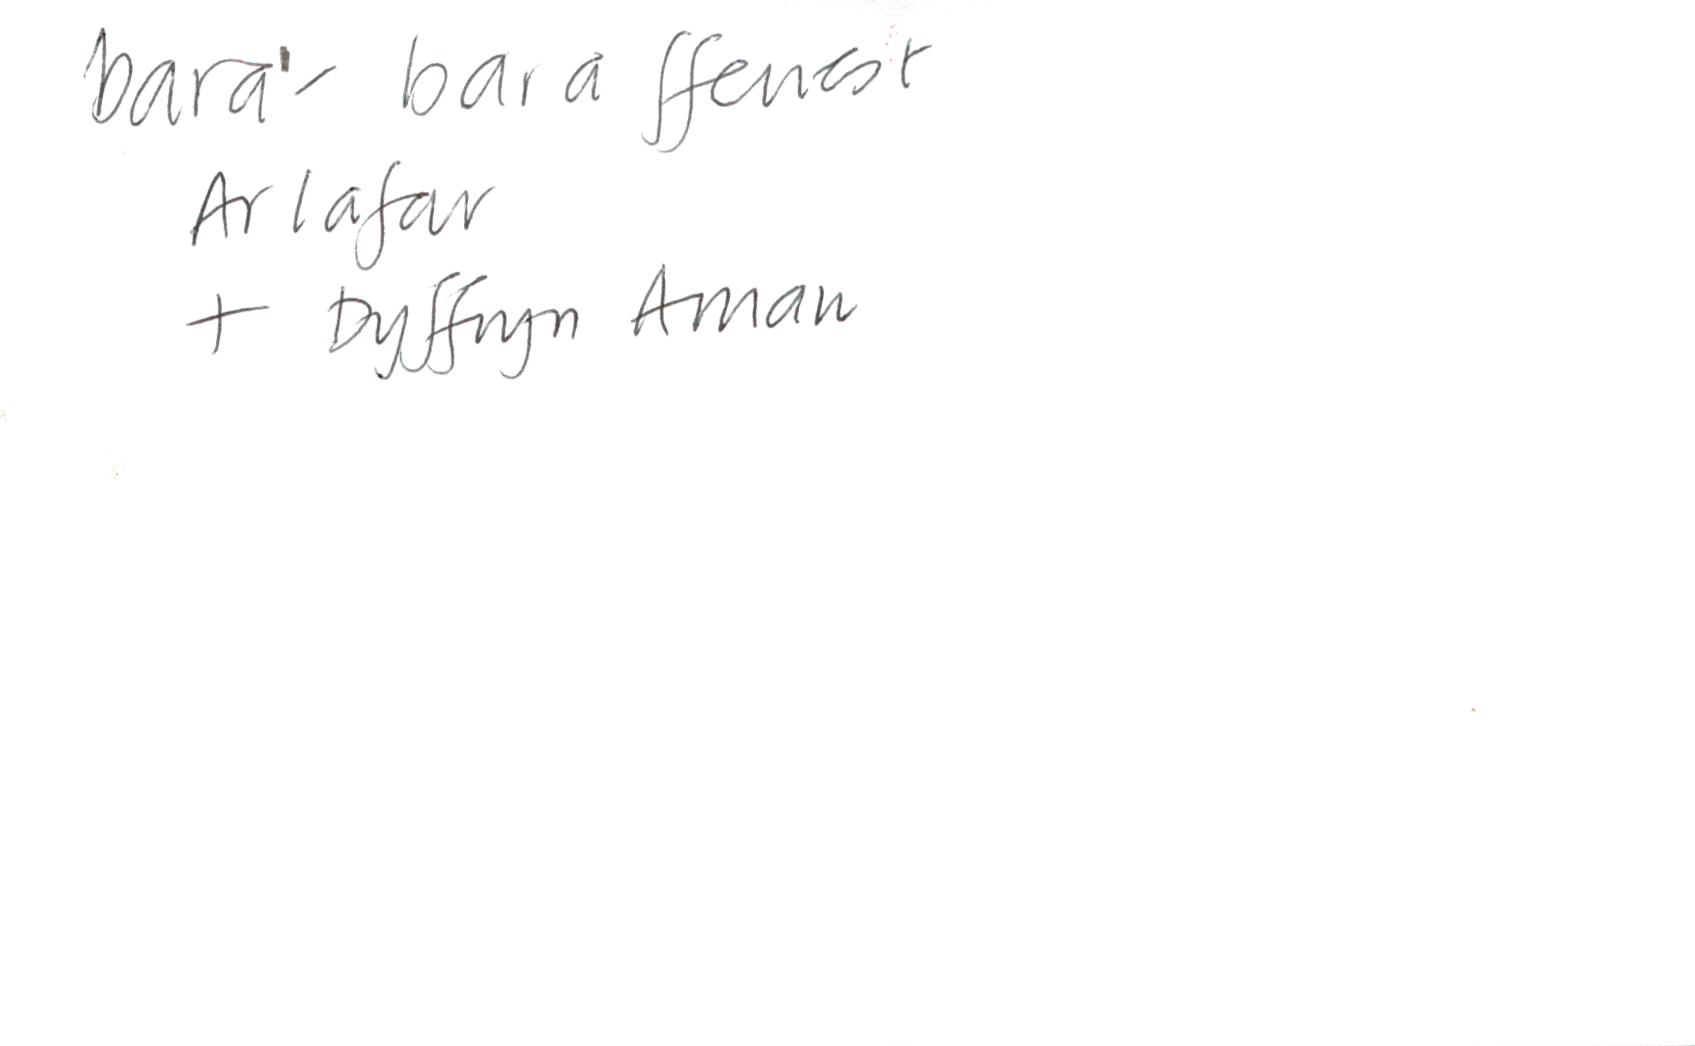 bara'- bara ffenest
Ar lafar
+ Dyffryn Aman